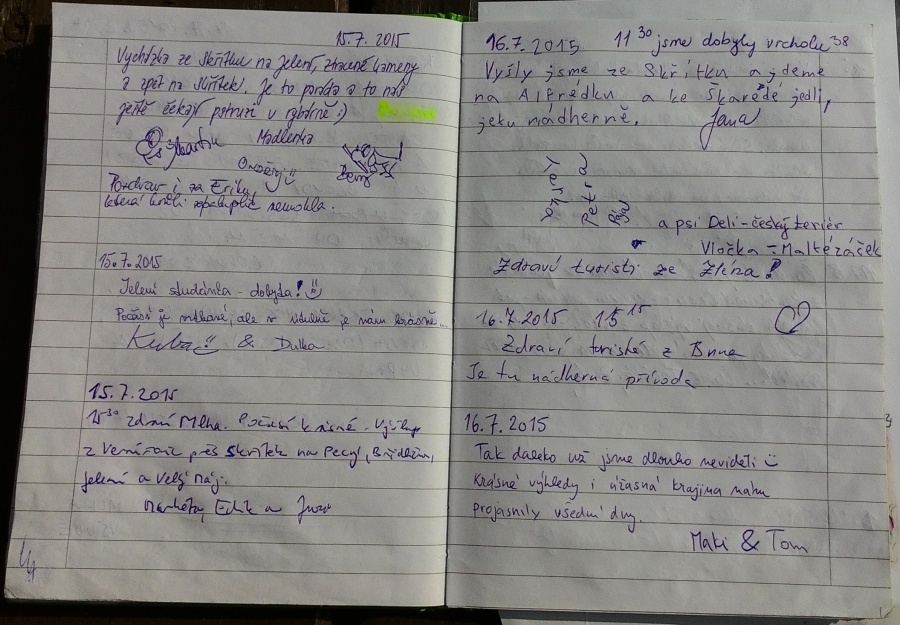 15.7.2015
Vycházka ze Skřítku na Jelení, ztracené kameny
a zpět na Skřítek. Je to paráda a to nás
ještě čekají pstruzi v rybárně :)
Martin
Madlenka
Ondřej
Beny
Pozdrav i za Eriku,
která kvůli nemohla.
15.7.2015
Jelení studánka - dobyta!
Počasí je, ale v útulně je nám krásně...
Kuba & Dulka
15.7.2015
15³⁰ zdraví Mlha. Počasí krásné. Výšlap
z Vernířovic přes Skřítek na Pecny, Břidličnou,
Jelení a Velký Máj.
Markéta, Edík a
16.7.2015 11³⁰ jsme dobyly vrcholu
38
Vyšly jsme ze Skřítku a jdeme
na Alfrédku a ke Škaredé jedli,
je tu nádherně. Jana
Petra
a psi Deli - český teriér
Vločka - Maltézáček
Zdraví turisti ze Zlína!
16.7.2015 15¹⁵
Zdraví turisté z Brna
Je tu nádherná příroda
16.7.2015
Tak daleko už jsme dlouho neviděli
Krásné výhledy i úžasná krajina nám
projasnily všední dny.
Maki & Tom